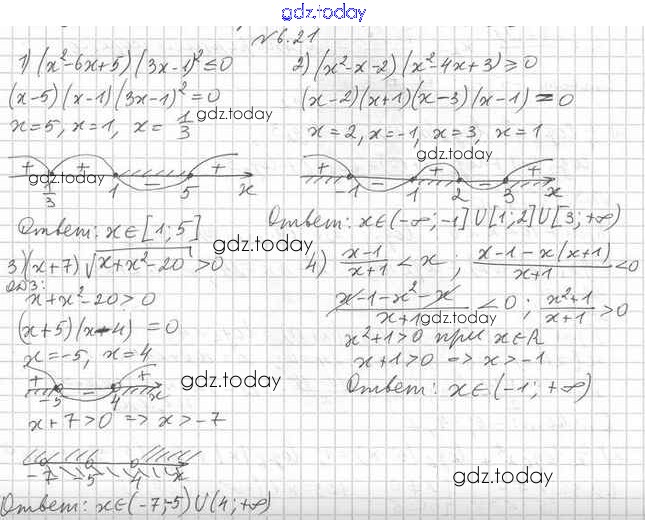 gdz.today
N 6.21
1) (x²-6x+5)(3x-1)² ≤ 0
(x-5)(x-1)(3x-1)² = 0
x=5, x=1, x= 1/3
gdz.today
+ + - +
1/3 1 5 x
gdz.today
Ответ: x∈[1; 5]
2) (x²-x-2)(x²-4x+3) ≥ 0
(x-2)(x+1)(x-3)(x-1) = 0
x=2, x=-1, x=3, x=1
gdz.today
+ - + - +
-1 1 2 3 x
Ответ: x∈(-∞; -1]∪[1; 2]∪[3; +∞)
gdz.today
3) (x+7)√(x+x²-20) > 0
ОДЗ:
x+x²-20 > 0
(x+5)(x-4) = 0
x=-5, x=4
gdz.today
+ - +
-5 4 x
x+7 > 0 => x > -7
-7 -5 4 x
Ответ: x∈(-7; -5)∪(4; +∞)
4) (x-1)/(x+1) < x ; (x-1-x(x+1))/(x+1) < 0
(x-1-x²-x)/(x+1) < 0 ; (x²+1)/(x+1) > 0
gdz.today
x²+1 > 0 при x∈R
x+1 > 0 => x > -1
Ответ: x∈(-1; +∞)
gdz.today